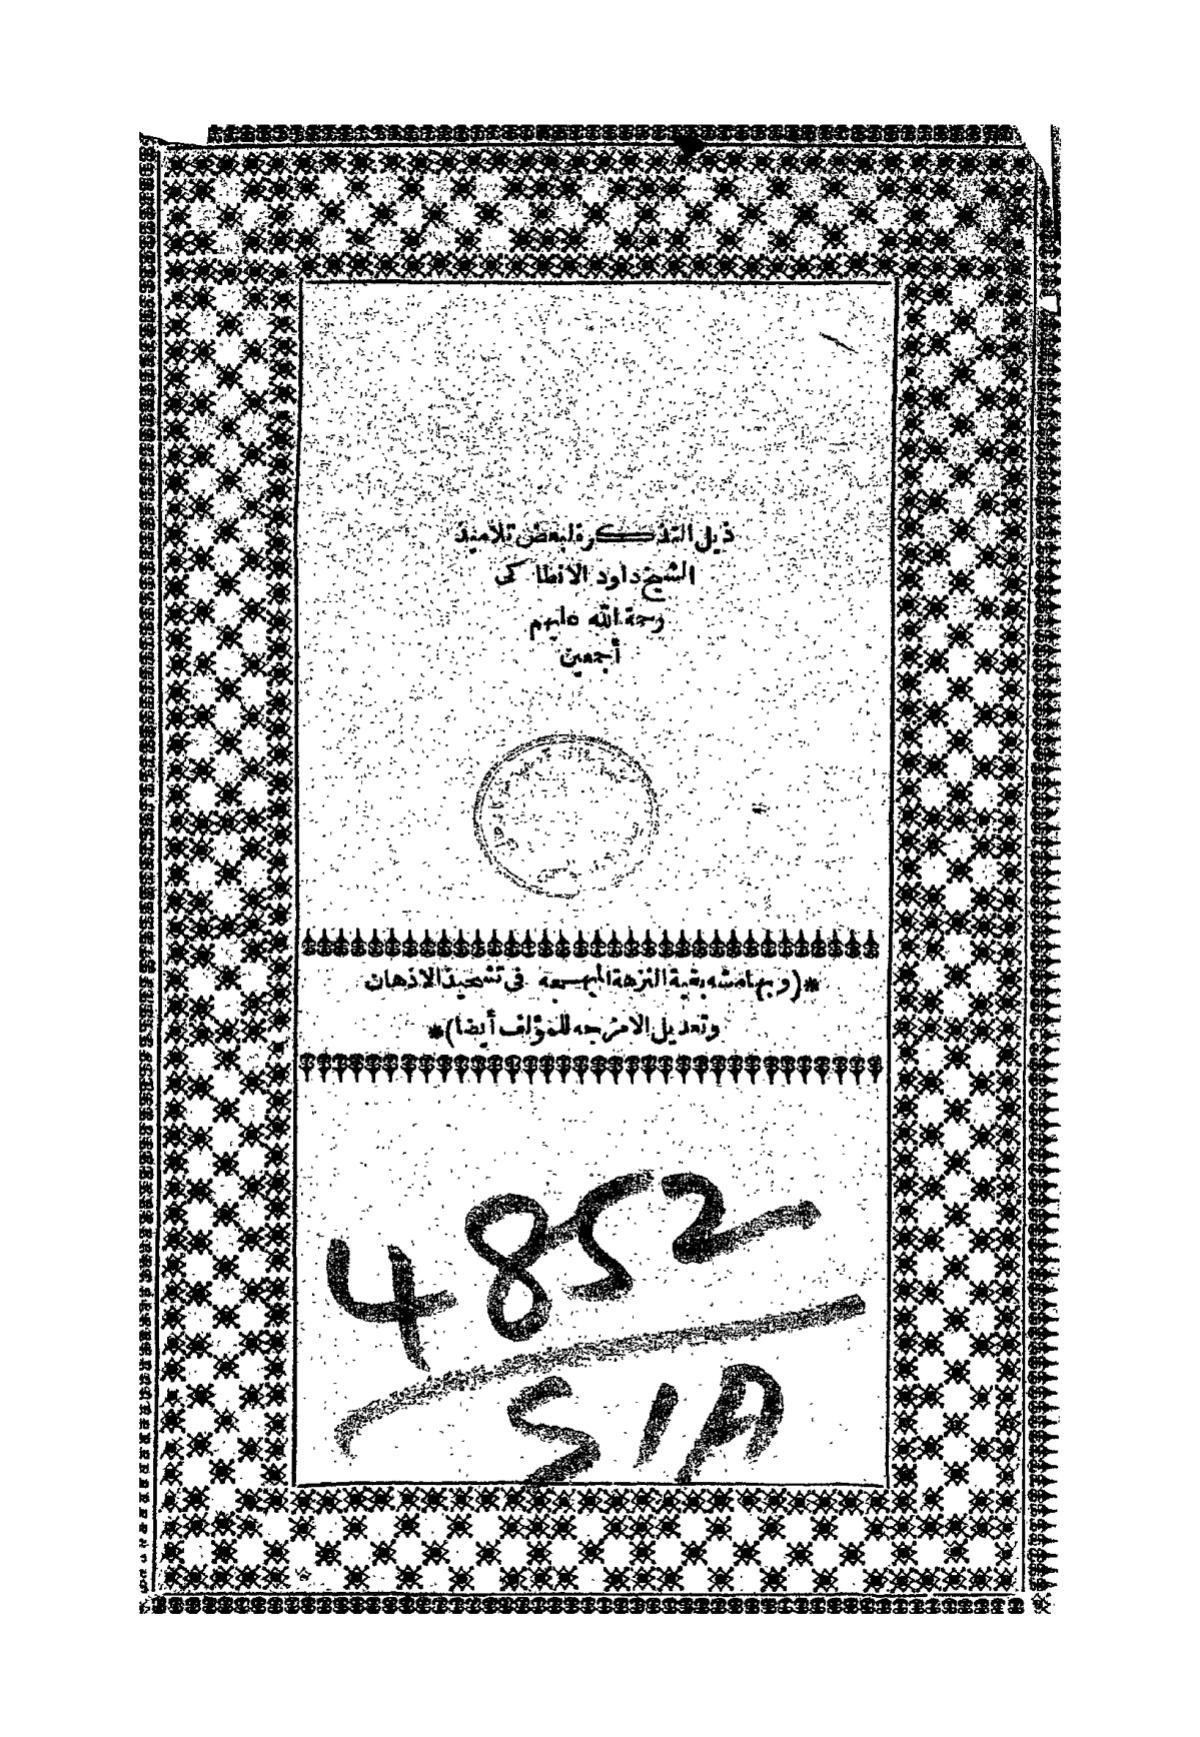 ذيل التذكرة لبعض تلاميذ
الشيخ داود الانطاكى
رحمة الله عليهم
أجمعين
*(وبهامشه بقية النزهة المبهجه فى تشحيذ الاذهان
وتعديل الامزجه للمؤلف أيضا)*
4852